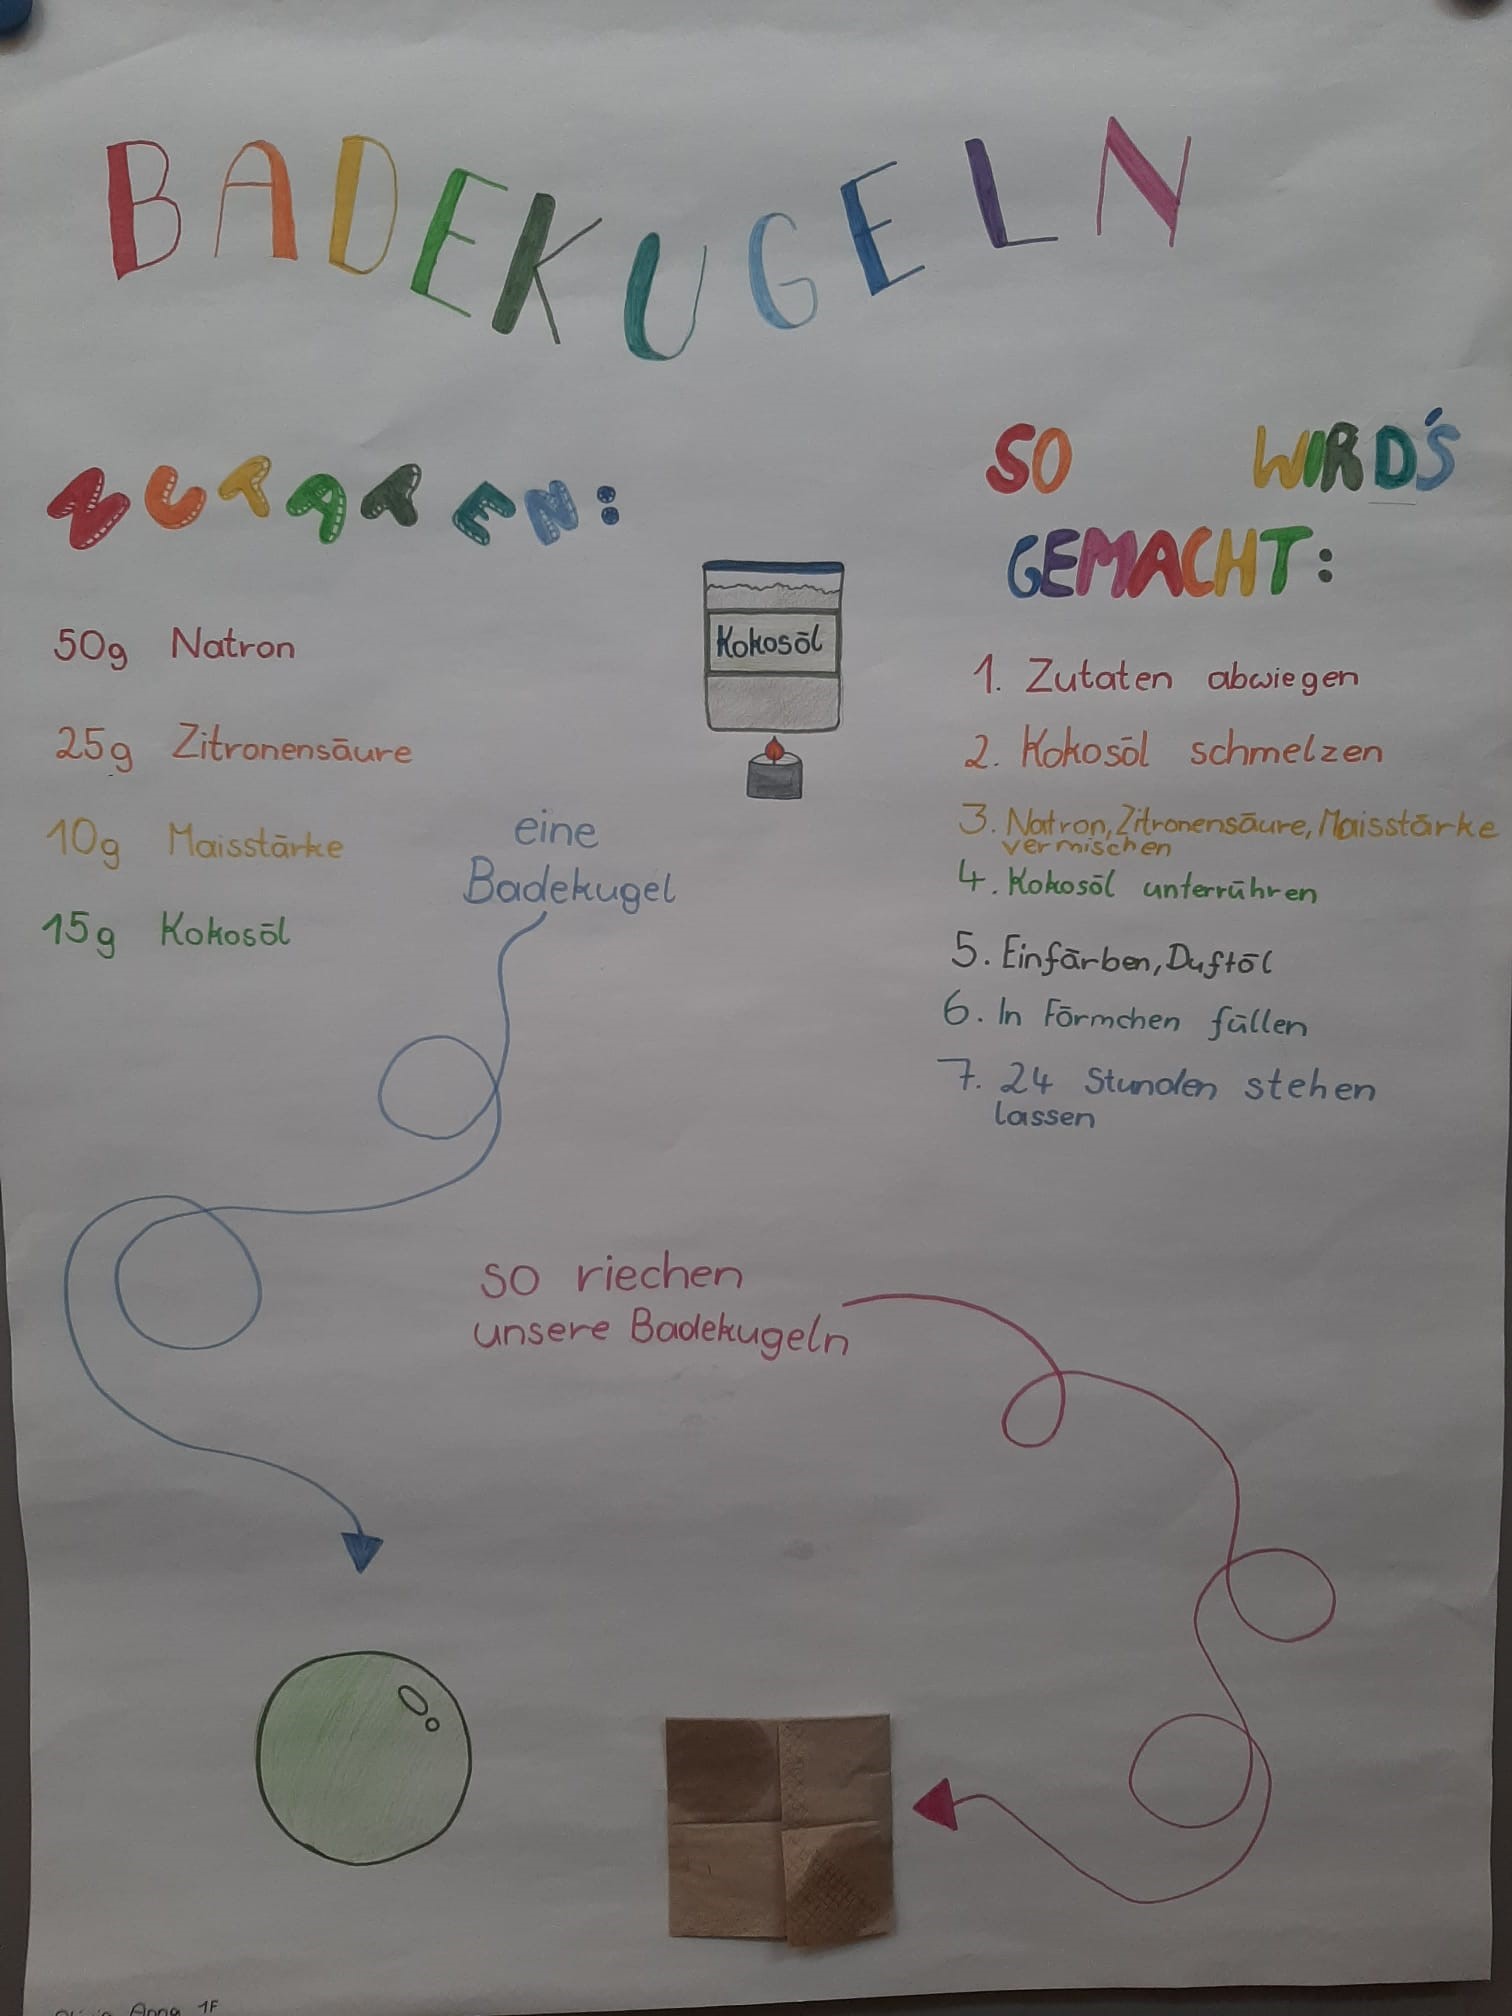 BADEKUGELN
ZUTATEN:
50g Natron
25g Zitronensäure
10g Maisstärke
15g Kokosöl
Kokosöl
SO WIRD'S
GEMACHT:
1. Zutaten abwiegen
2. Kokosöl schmelzen
3. Natron, Zitronensäure, Maisstärke
vermischen
4. Kokosöl unterrühren
5. Einfärben, Duftöl
6. In Förmchen füllen
7. 24 Stunden stehen
lassen
eine
Badekugel
so riechen
unsere Badekugeln
Anna 1F